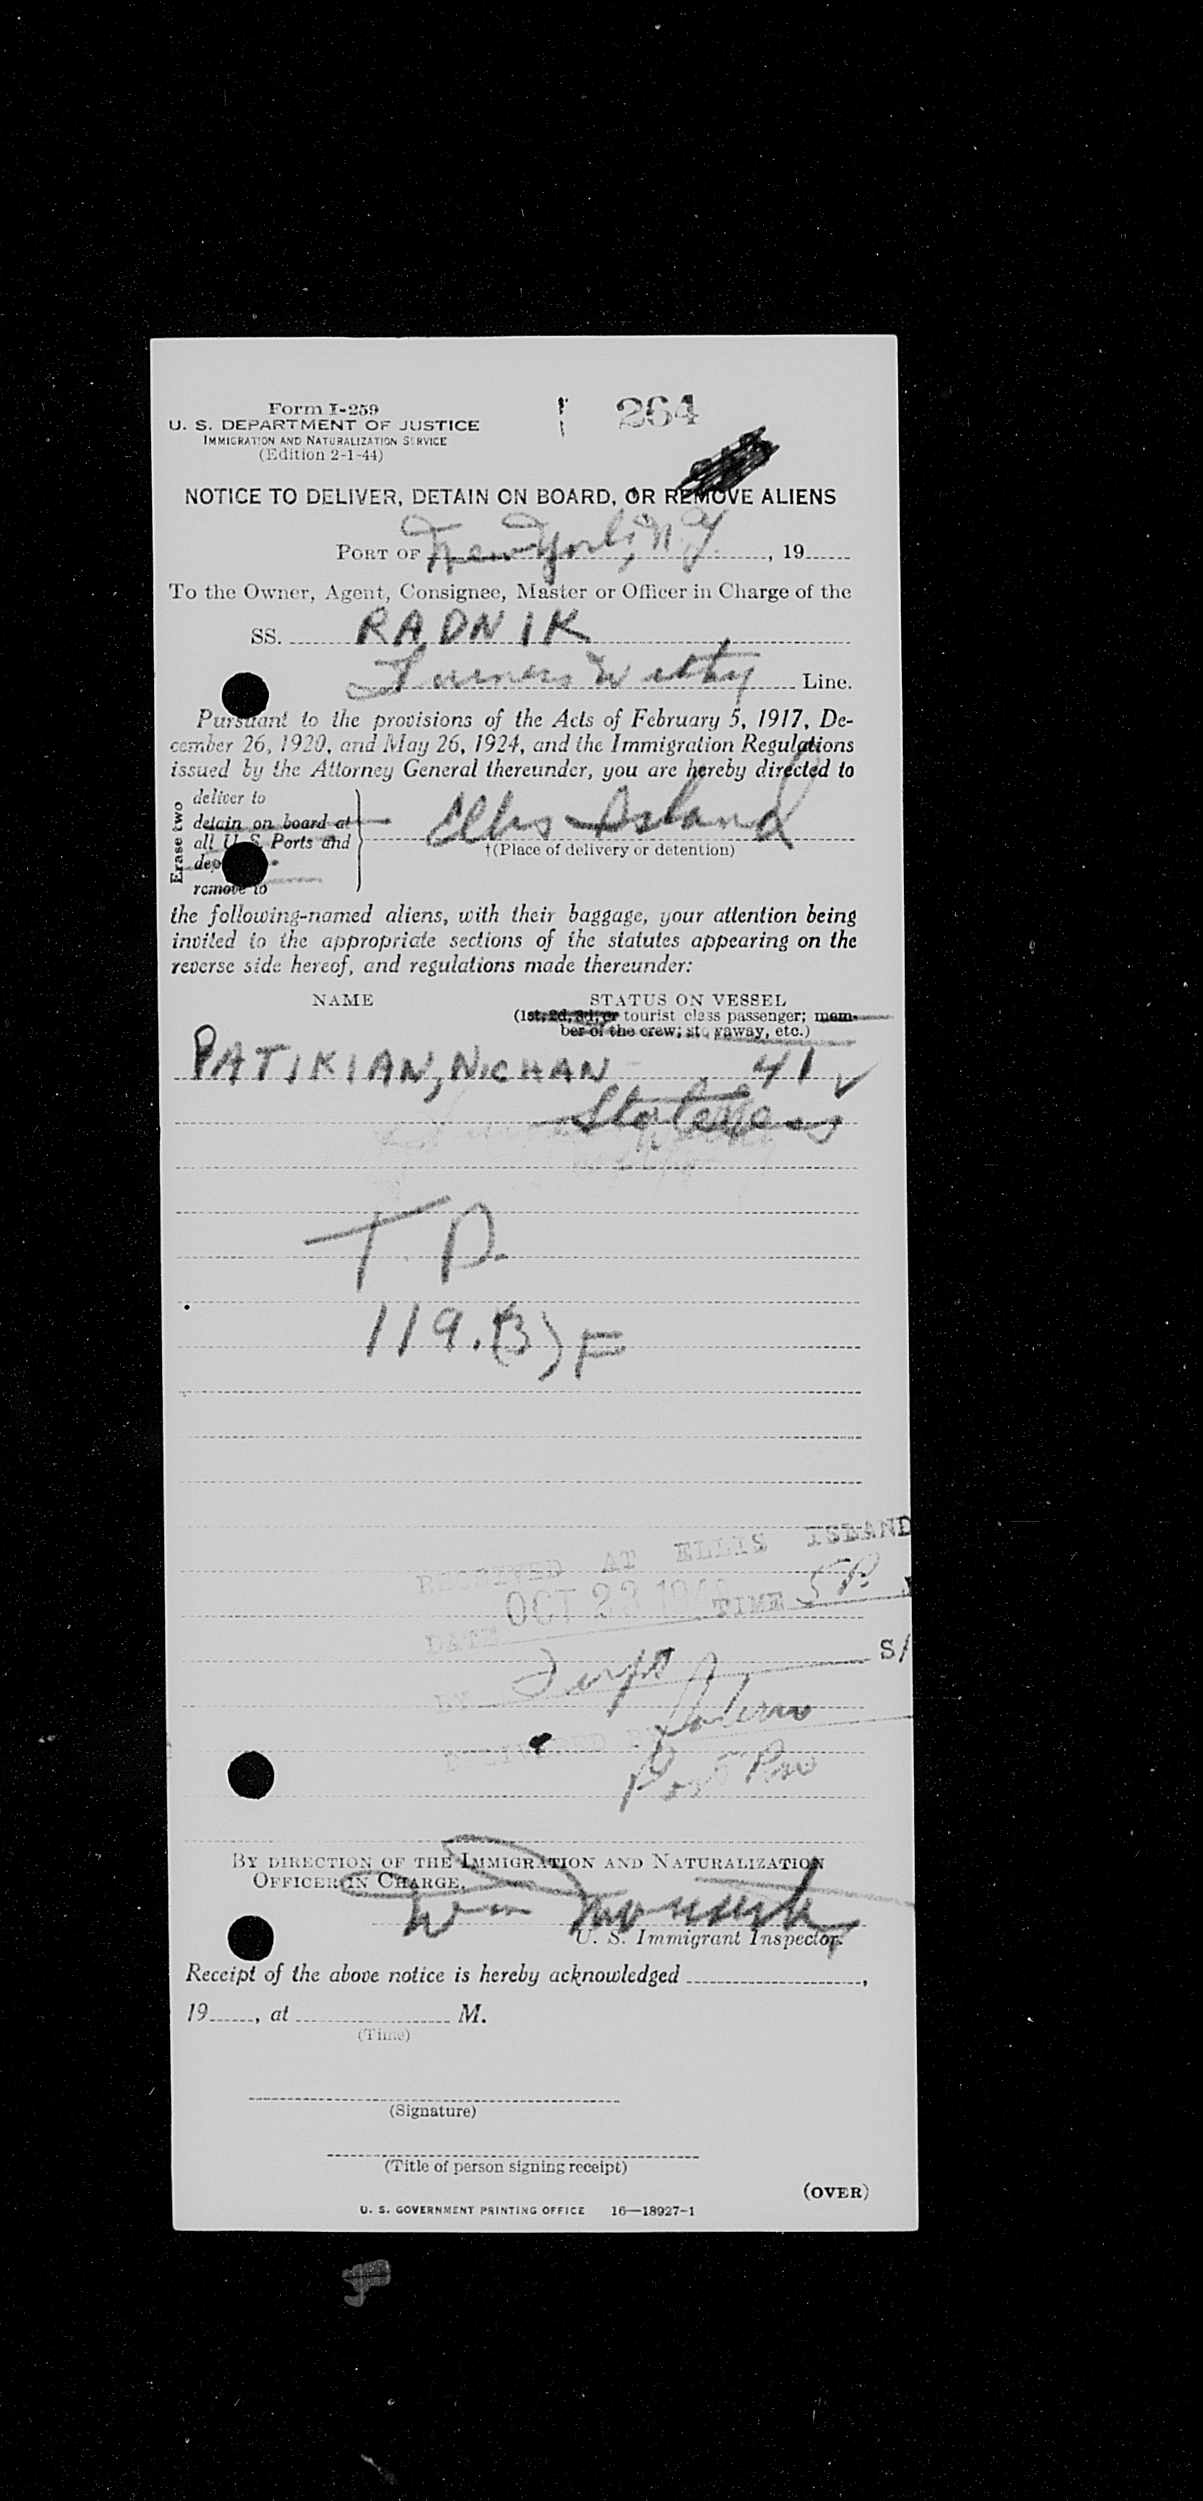 Form I-259
U. S. DEPARTMENT OF JUSTICE
IMMIGRATION AND NATURALIZATION SERVICE
(Edition 2-1-44)
264
NOTICE TO DELIVER, DETAIN ON BOARD, OR REMOVE ALIENS
PORT OF New York, N.Y. , 19
To the Owner, Agent, Consignee, Master or Officer in Charge of the
SS. RADNIK
Furness Withy Line.
Pursuant to the provisions of the Acts of February 5, 1917, De-
cember 26, 1920, and May 26, 1924, and the Immigration Regulations
issued by the Attorney General thereunder, you are hereby directed to
Erase two
deliver to
detain on board at
all U. S. Ports and
remove to
Ellis Island
†(Place of delivery or detention)
the following-named aliens, with their baggage, your attention being
invited to the appropriate sections of the statutes appearing on the
reverse side hereof, and regulations made thereunder:
NAME STATUS ON VESSEL
(1st, 2d, 3d, or tourist class passenger; mem-
ber of the crew; stowaway, etc.)
PATIKIAN, NICHAN 41 ✓
Stateless
T.D.
119.(3) F
RECEIVED AT ELLIS ISLAND
DATE OCT 23 TIME 5 P.
BY S/
BY DIRECTION OF THE IMMIGRATION AND NATURALIZATION
OFFICER IN CHARGE,
Wm
U. S. Immigrant Inspector.
Receipt of the above notice is hereby acknowledged ,
19 , at M.
(Time)
(Signature)
(Title of person signing receipt)
(OVER)
U. S. GOVERNMENT PRINTING OFFICE 16—18927-1